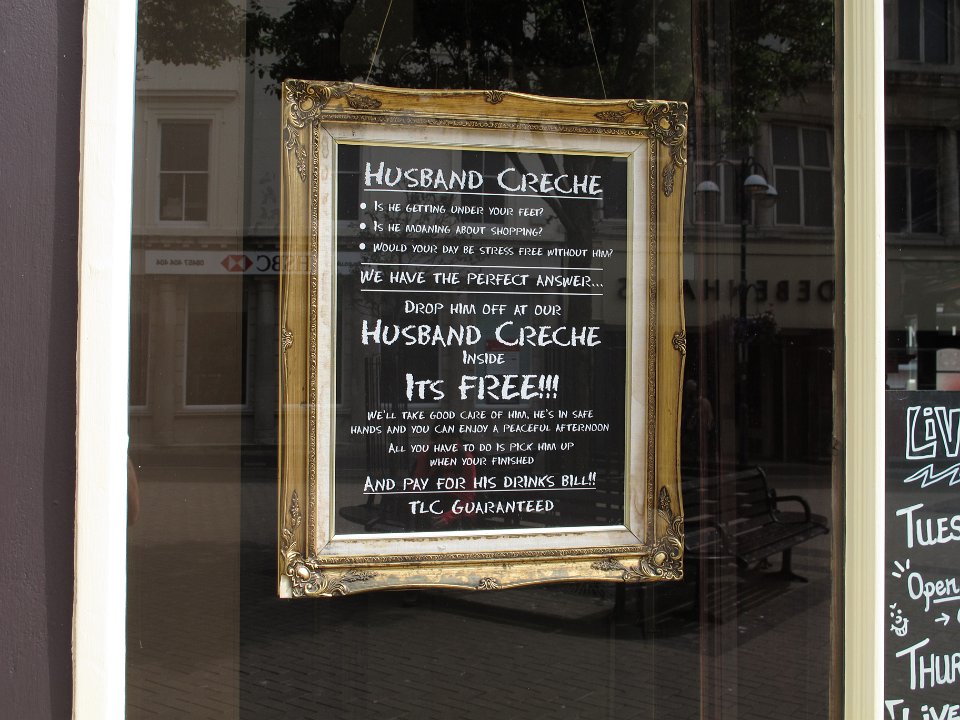 Husband Creche
• Is he getting under your feet?
• Is he moaning about shopping?
• Would your day be stress free without him?
We have the perfect answer...
Drop him off at our
Husband Creche
Inside
Its FREE!!!
We'll take good care of him, he's in safe
hands and you can enjoy a peaceful afternoon
All you have to do is pick him up
when your finished
And pay for his drinks bill!!
TLC Guaranteed
HSBC
DEBENHAMS
LiV
Tues
Open
Thur
Live